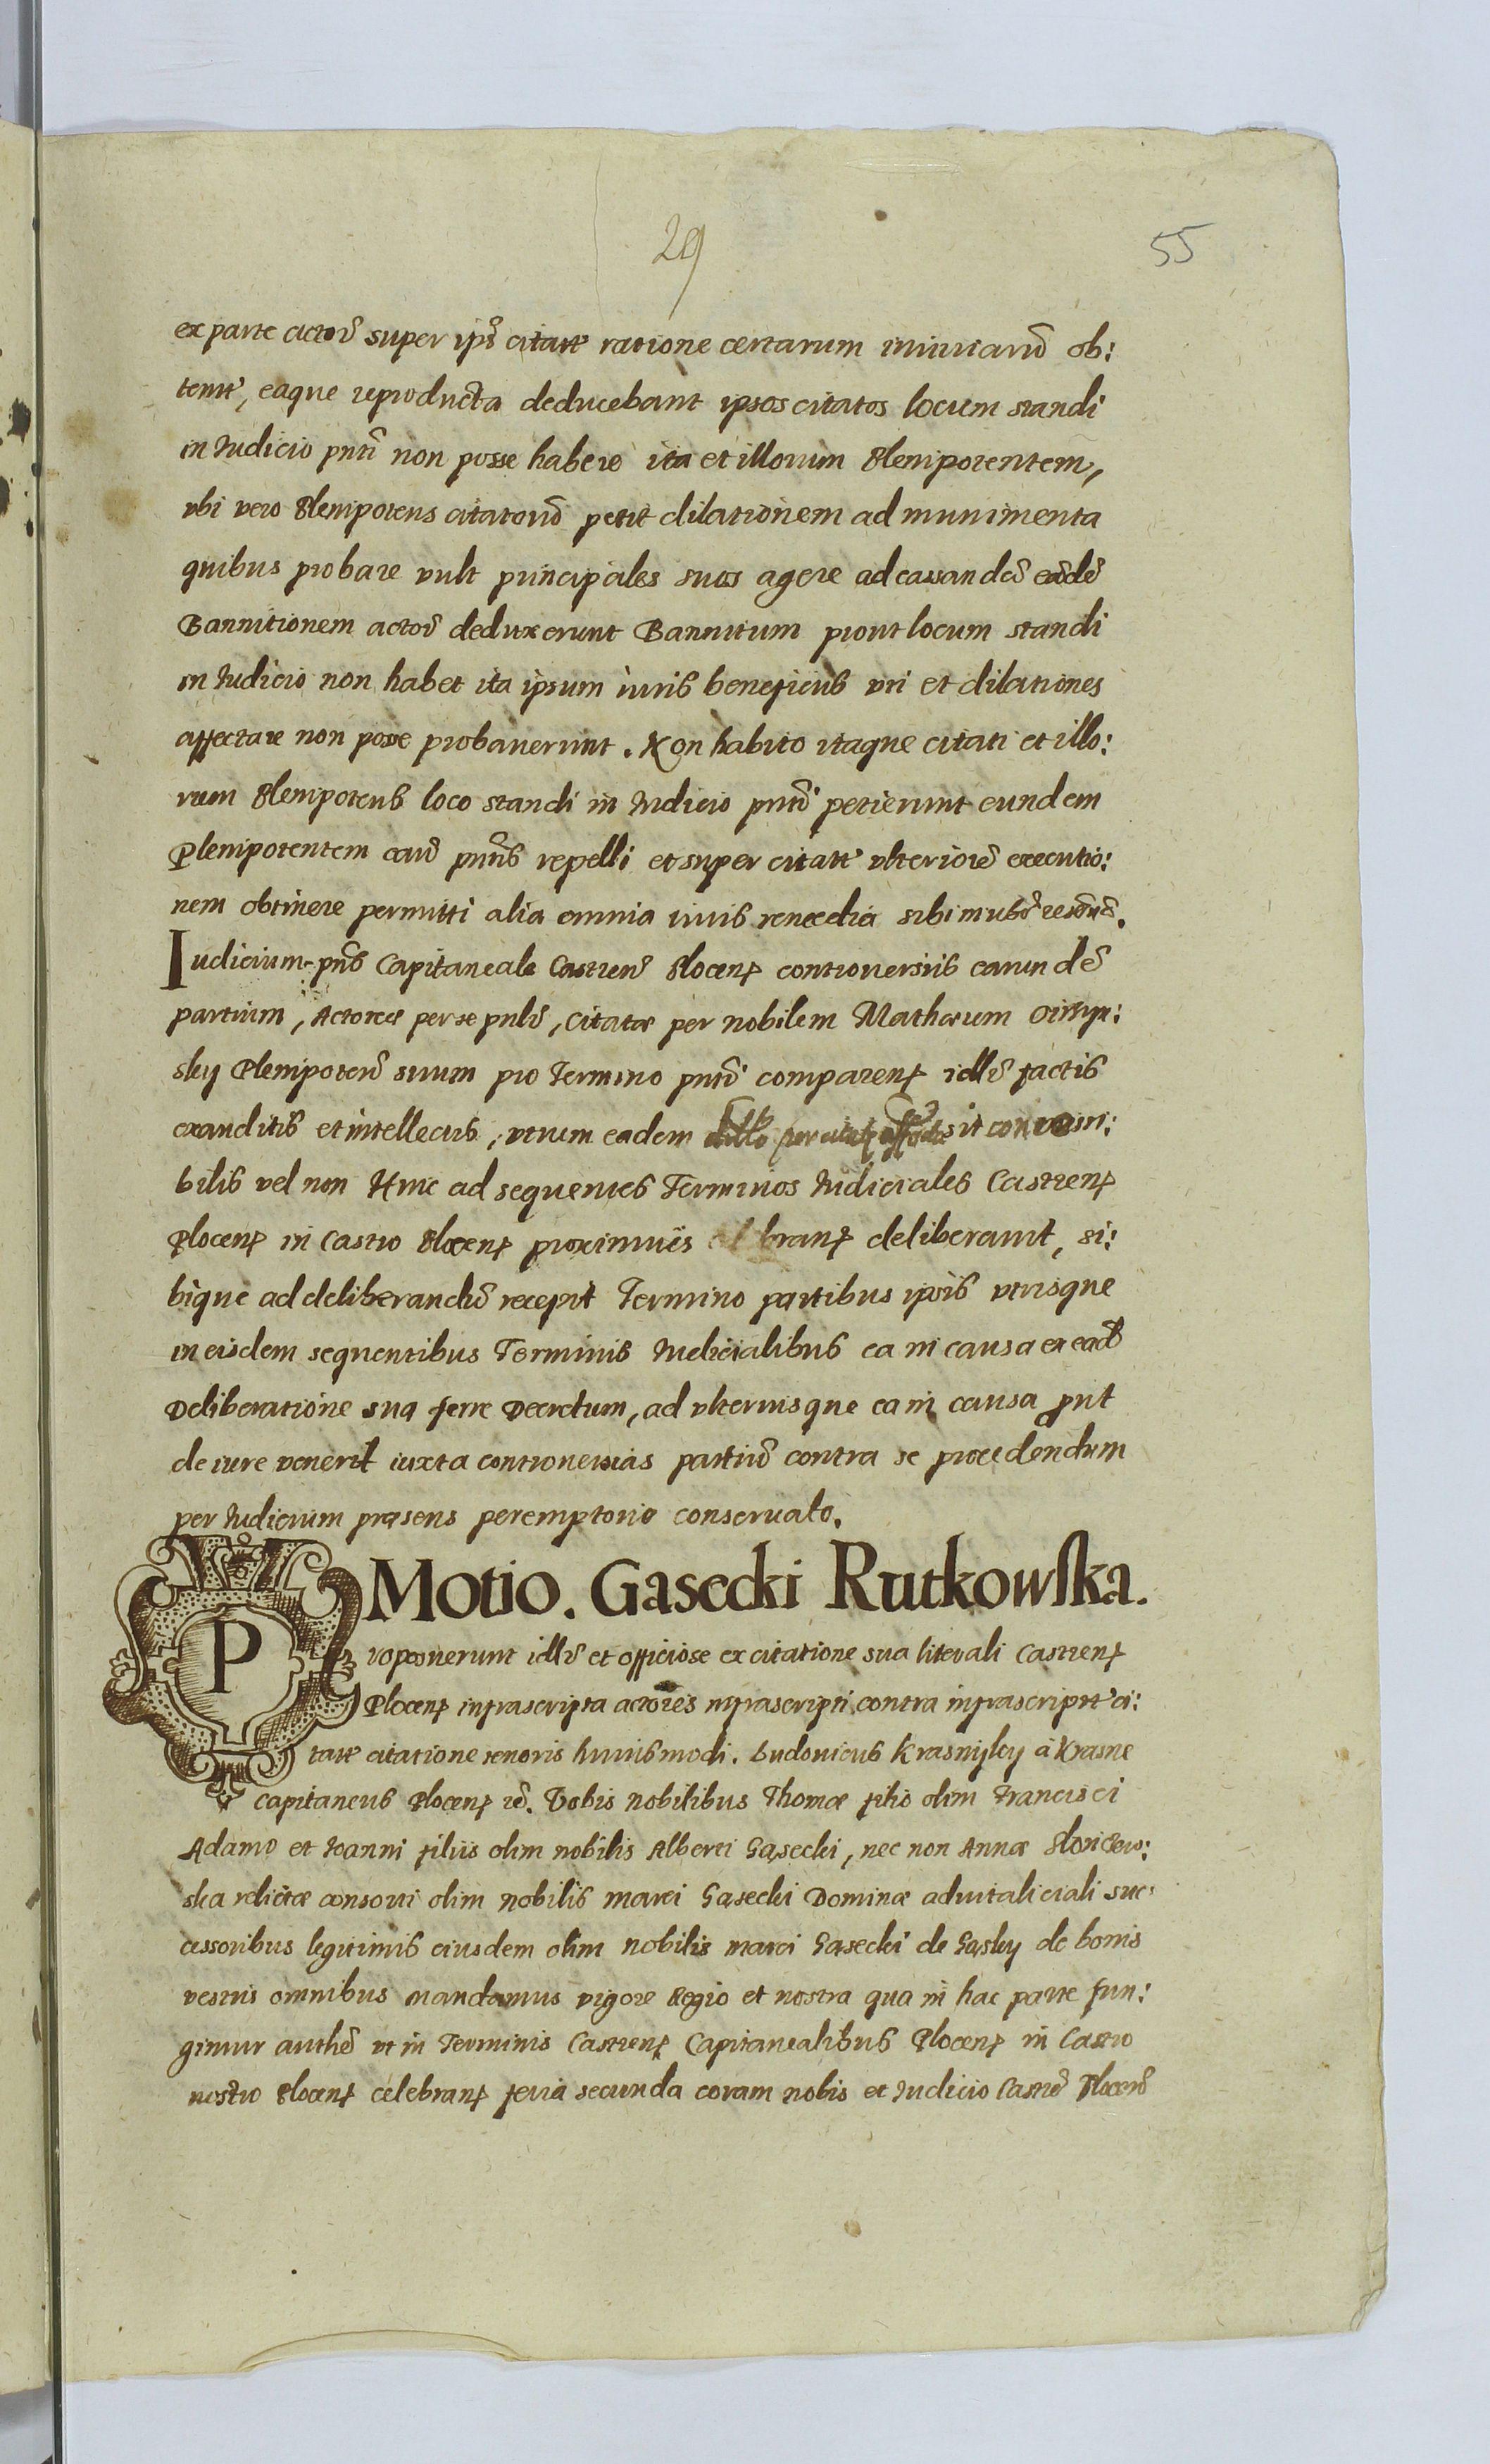 29
55
ex parte actorũ super ipŝ citatt ratione certarum iniuriarũ ob:
tent, eaque reproducta deducebant ipsos citatos locum standi
in Iudicio pñti non posse habere ita et illorum Plenipotentem,
vbi vero Plenipotens citatorũ petit dilationem ad munimenta
quibus probare vult principales suos agere ad cassandã eandẽ
Bannitionem actorẽ deduxerunt Bannitum prout locum standi
in Iudicio non habet ita ipsum iuris beneficiis vti et dilationes
affectare non posse probauerunt. Non habito itaque citati et illo:
rum Plenipotentis loco standi in Iudicio pñti petierunt eundem
Plenipotentem pñtis repelli et super citatt vlteriorẽ executio:
nem obtinere permitti alia omnia iuris remedia sibi in
Iudicium pñs Capitaneale Castreñ Plocens controuersiis earundẽ
partium, Actorea per se, citatæ per nobilem Mathæum
sky Plenipotentẽ suum pro Termino pñti comparens factis
exauditis et intellectis, vtrum eadem sit
bilis vel non Hinc ad sequentes Terminos Iudiciales Castrens
Plocens in Castro Plocens proximius deliberauit, si:
bique ad deliberandũ recepit Termino partibus ipsis vtrisque
in eisdem sequentibus Terminis Iudicialibus ea in causa ex eadẽ
Deliberatione sua ferre Decretum, ad vlteriusque ea in causa prt
de iure venerit iuxta controuersias partiũ contra se procedendum
per Iudicium præsens peremptorie conseruato.
Motio. Gasecki Rutkowska.
Proposuerunt iudlr et officiose ex citatione sua literali Castrens
Plocens infrascripta actores infrascripti contra infrascriptt ci:
tatt citatione tenoris huiusmodi. Ludouicus Krasnijsky a Krasne
capitaneus Plocens &c. Vobis nobilibus Thomæ filio olim Francisci
Adamo et Ioanni filiis olim nobilis Alberti Gąsecki, nec non Annæ
ska relictæ consorti olim nobilis Marci Gąsecki Dominæ aduitaliciali suc:
cessoribus legitimis eiusdem olim nobilis Marci Gąsecki de Gąsky de bonis
vestris omnibus mandamus vigore Regio et nostra qua in hac parte fun:
gimur authẽ vt in Terminis Castrens Capitanealibus Plocens in Castro
nostro Plocens celebrans feria secunda coram nobis et Iudicio Castrẽ Plocenẽ